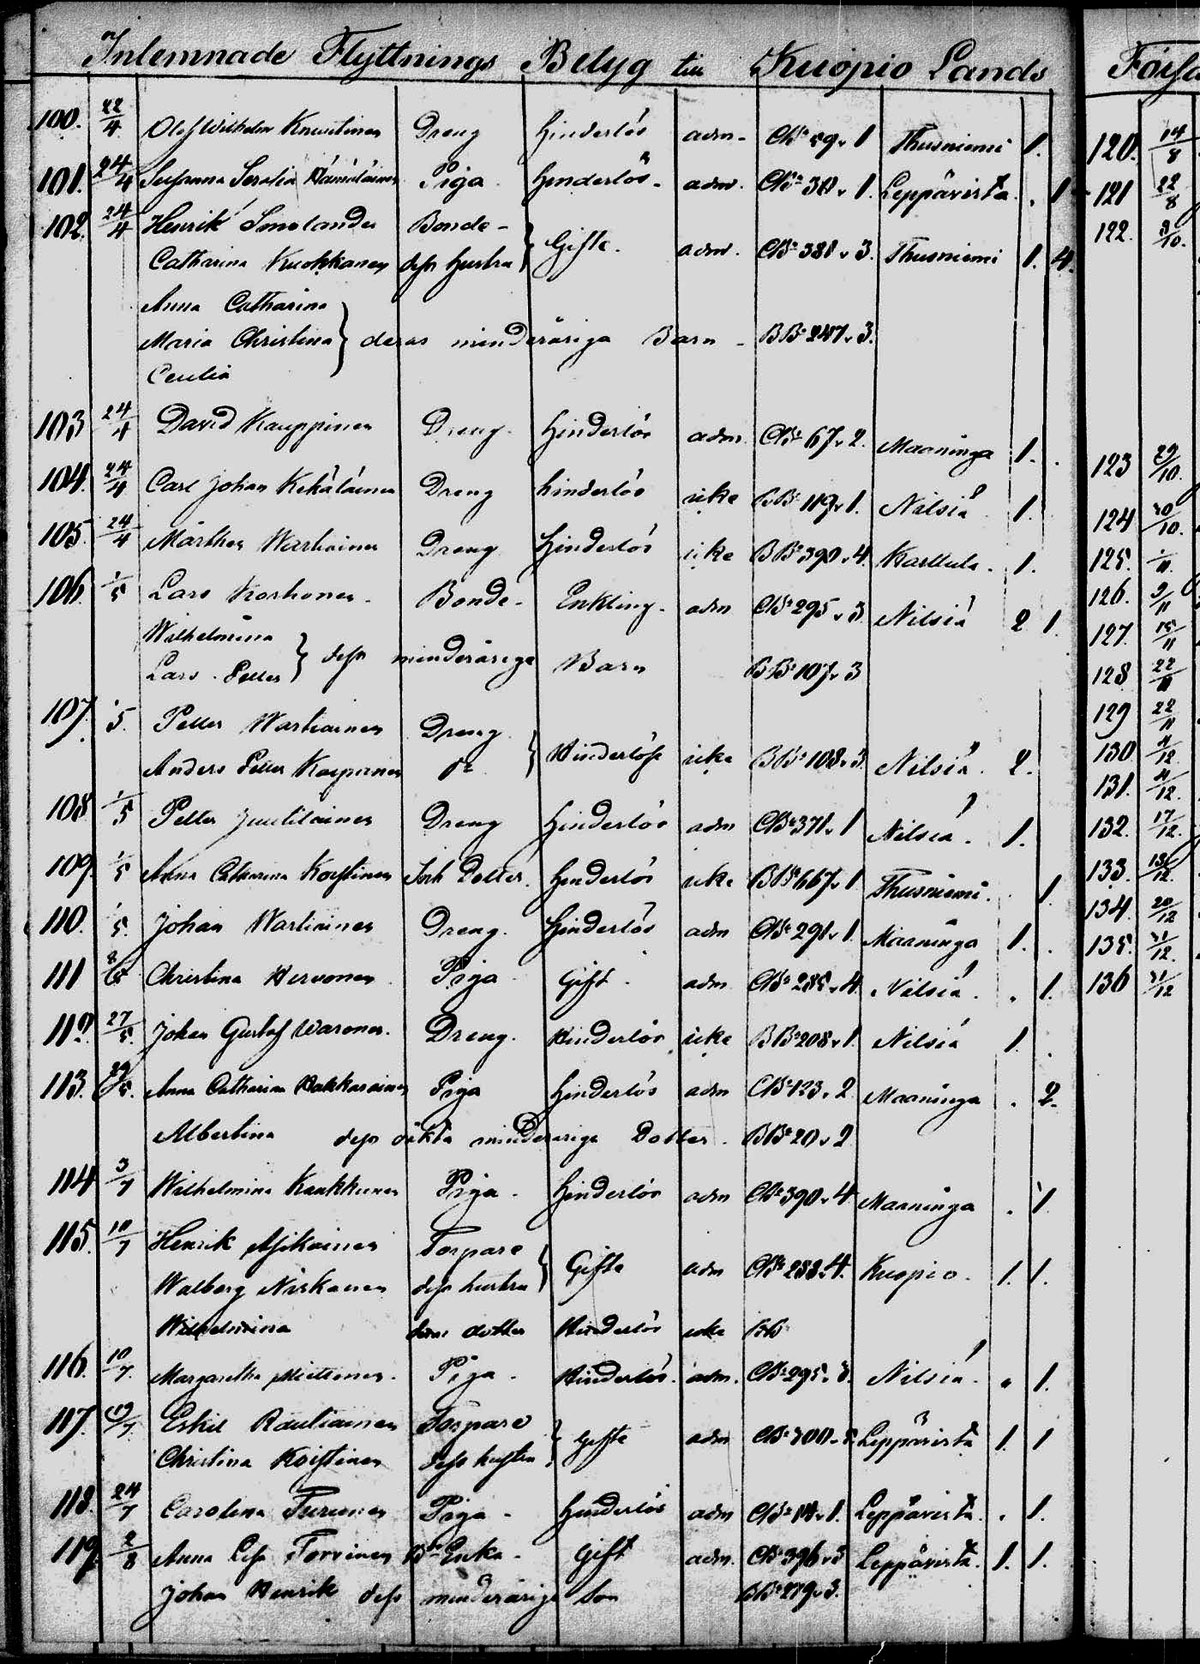 Inlemnade Flyttnings Betyg till Kuopio Lands
100. 22/4 Olof Wilhelm Knuutinen Dreng hinderlös adm. CB: 59. v 1 Thusniemi 1.
101. 24/4 Susanna Serafia Hämäläinen Piga hinderlös adm. v 1. Leppävirta . 1
102. 24/4 Henrik Smolander Bonde
Catharina Kuokkanen dess hustru } Gifte. adm. CB: 381 v 3. Thusniemi 1. 4.
Anna Catharina
Maria Christina } deras minderåriga Barn BB: 247 v 3.
Cecilia
103 24/4 David Kauppinen Dreng hinderlös adm CB: 67 v 2. Maaninga 1.
104. 24/4 Carl Johan Kekäläinen Dreng hinderlös icke BB: 119 v 1. Nilsiä 1.
105. 24/4 Mårthen Wartiainen Dreng hinderlös icke BB: 390 v 4 Karttula. 1.
106. 1/5 Lars Korhonen Bonde Enkling adm CB: 295 v 3 Nilsiä 2 1.
Wilhelmina
Lars Petter } dess minderåriga Barn BB: 107 v 3
107. 5. Petter Wartiainen Dreng
Anders Petter Korpinen do } Hinderlöse icke BB: 108 v 3 Nilsiä 2.
108 1/5 Petter Juutilainen Dreng hinderlös adm CB: 371 v 1 Nilsiä 1.
109. 1/5 Anna Catharina Koistinen Dotter hinderlös icke BB: 667 v 1 Thusniemi 1.
110. 5. Johan Wartiainen Dreng. hinderlös adm CB: 291 v 1. Maaninga 1.
111 Christina Hervonen Piga Gift adm CB: 285 v 4. Nilsiä . 1.
112. 27/5. Johan Gustaf Waronen. Dreng. Hinderlös icke BB: 208 v 1. Nilsiä 1.
113. 29/5. Anna Catharina Piga hinderlös adm CB: 123 v 2 Maaninga . 2.
Albertina dess oäkta minderåriga Dotter. BB: 20 v 2
114 3/7 Wilhelmina Kaukkunen Piga hinderlös adm CB: 390 v 4 Maaninga . 1.
115. 10/7 Henrik Torpare
Walborg Niskanen dess hustru } Gifta adm CB: 288 v 4. Kuopio. 1. 1.
Wilhelmina dotter Hinderlös icke BB
116. 10/7. Margaretha Miettinen. Piga Hinderlös. adm. CB: 295 v 3. Nilsiä . 1.
117. 19/7. Eskil Rautiainen Torpare
Christina Koistinen dess hustru } Gifte adm CB: 300 v Leppävirta 1. 1
118. 24/7 Carolina Turunen Piga hinderlös adm CB: 14 v 1. Leppävirta . 1.
119 2/8 Anna Lisa Torvinen Enka Gift adm. CB: 396 v 3 Leppävirta. 1. 1.
Johan Henrik dess minderårige Son BB: 279 v 3.
120. 14/8
121 22/8
122. /10.
123 29/10.
124 /10.
125. /11.
126. 3/11
127. 15/11
128 22/11
129 22/11
130 4/12
131. 4/12.
132. 17/12.
133. /12.
134. 20/12
135. 31/12.
136 31/12